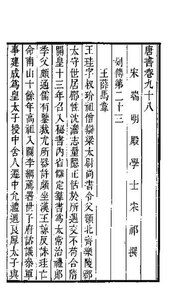 唐書卷九十八
宋端明殿學士宋祁撰
列傳第二十三
王薛馬韋
王珪字叔玠祖僧辯梁太尉尚書令父顗北齊樂陵郡
太守世居郿性沈澹志量隱正恬於所遇交不苟合隋
開皇十三年召入秘書內省讎定羣書為太常治禮郎
季父頗通儒有鑒裁尤所器許頗坐漢王諒反誅珪亡
命南山十餘年高祖入關李綱薦署世子府諮議參軍
事建成為皇太子授中舍人遷中允禮遇良厚太子與